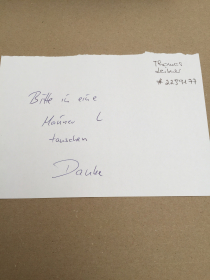 Thomas
#2259177
Bitte in eine
Männer L
tauschen
Danke